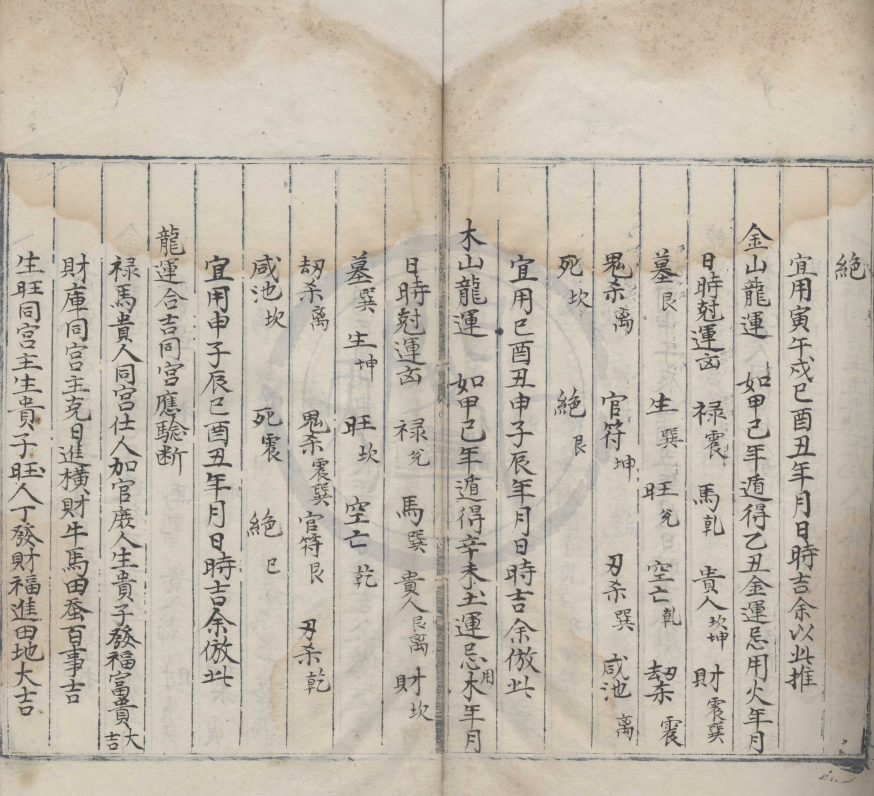 絶
宜用寅午戍巳酉丑年月日時吉余以此推
金山龍運 如甲己年遁得乙丑金運忌用火年月
日時尅運凶 禄震 馬乾 貴人坎坤 財震巽
墓艮 生巽 旺兌 空亡乾 劫杀震
鬼杀离 官符坤 刃杀巽 咸池离
死坎 絶艮
宜用巳酉丑申子辰年月日時吉余倣此
木山龍運 如甲己年遁得辛未土運忌用木年月
日時尅運凶 禄兌 馬巽 貴人艮离 財坎
墓巽 生坤 旺坎 空亡乾
劫杀离 鬼杀震巽 官符艮 刃杀乾
咸池坎 死震 絶巳
宜用申子辰巳酉丑年月日時吉余倣此
龍運合吉同宮應驗断
禄馬貴人同宮仕人加官庶人生貴子發福富貴大吉
財庫同宮主克日進横財牛馬田蚕百事吉
生旺同宮主生貴子旺人丁發財福進田地大吉